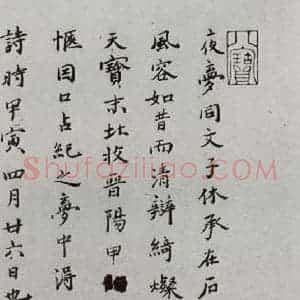 夜夢同文子休承在石
風容如昔而清辯綺燦
天寶末北收晉陽甲
愜因口占紀之夢中得
詩時甲寅四月廿六日也
Shufaziliao.com